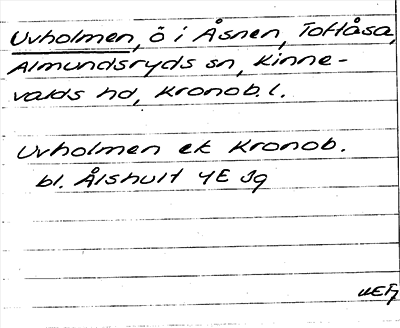 Uvholmen, ö i Åsnen, Toftåsa,
Almundsryds sn, Kinne-
valds hd, Kronob. l.
Uvholmen ek Kronob.
bl. Ålshult 4E Jg